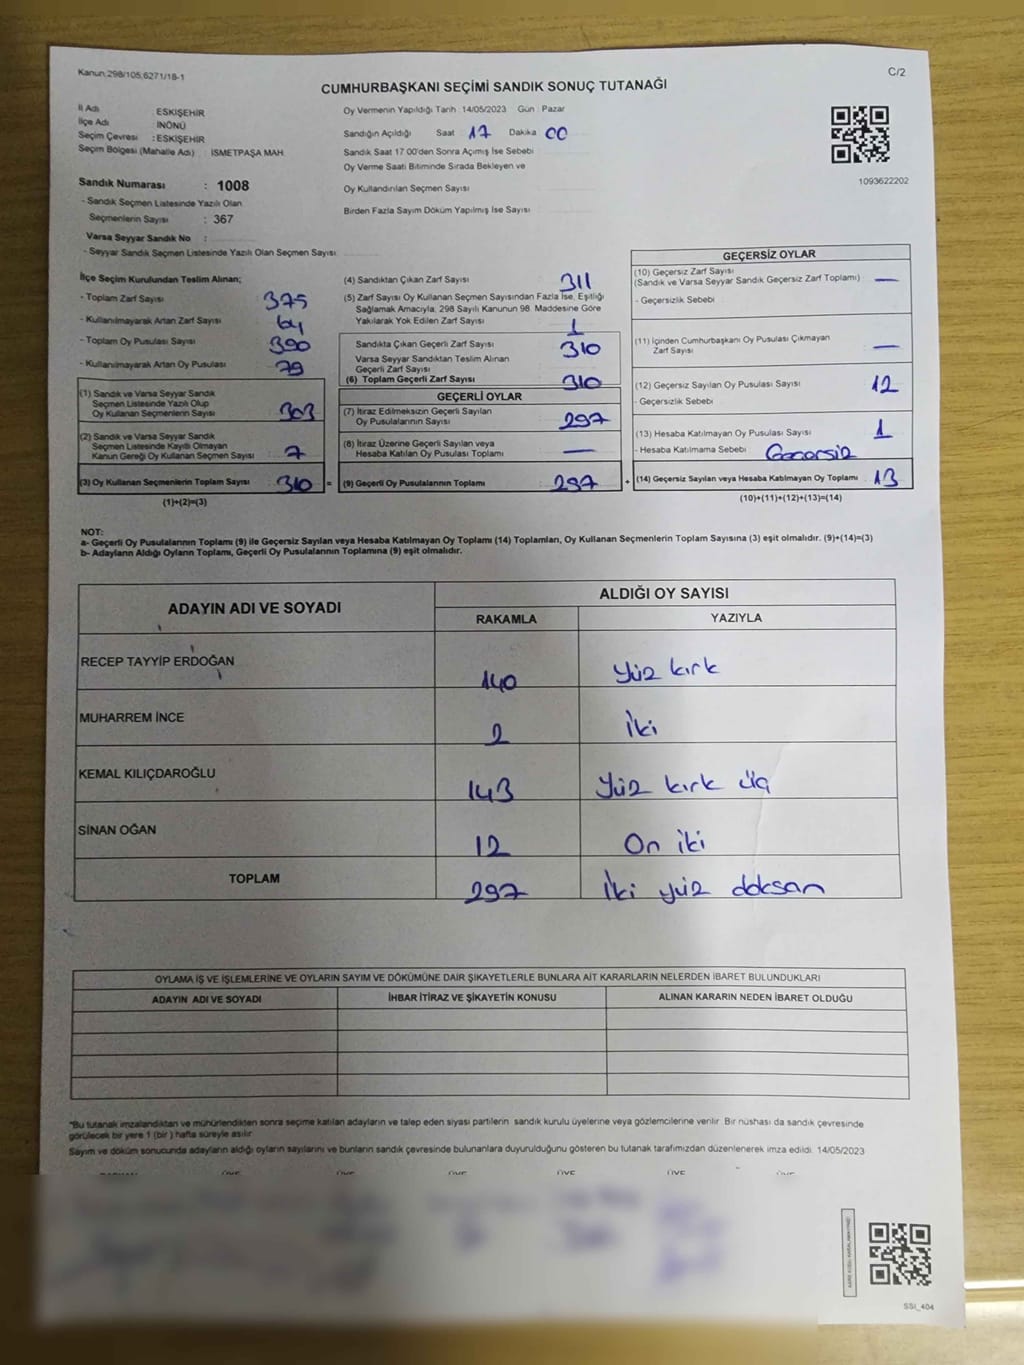 Kanun 298/105,6271/18-1
C/2
CUMHURBAŞKANI SEÇİMİ SANDIK SONUÇ TUTANAĞI
İl Adı ESKİŞEHİR
İlçe Adı İNÖNÜ
Seçim Çevresi : ESKİŞEHİR
Seçim Bölgesi (Mahalle Adı) : İSMETPAŞA MAH.
Sandık Numarası : 1008
- Sandık Seçmen Listesinde Yazılı Olan
Seçmenlerin Sayısı : 367
Varsa Seyyar Sandık No :
- Seyyar Sandık Seçmen Listesinde Yazılı Olan Seçmen Sayısı
Oy Vermenin Yapıldığı Tarih :14/05/2023 Gün : Pazar
Sandığın Açıldığı Saat 17 Dakika 00
Sandık Saat 17:00'den Sonra Açımış İse Sebebi
Oy Verme Saati Bitiminde Sırada Bekleyen ve
Oy Kullandırılan Seçmen Sayısı
Birden Fazla Sayım Döküm Yapılmış İse Sayısı
1093622202
İlçe Seçim Kurulundan Teslim Alınan;
- Toplam Zarf Sayısı 375
- Kullanılmayarak Artan Zarf Sayısı 64
- Toplam Oy Pusulası Sayısı 390
- Kullanılmayarak Artan Oy Pusulası 79
(1) Sandık ve Varsa Seyyar Sandık
Seçmen Listesinde Yazılı Olup
Oy Kullanan Seçmenlerin Sayısı 303
(2) Sandık ve Varsa Seyyar Sandık
Seçmen Listesinde Kayıtlı Olmayan
Kanun Gereği Oy Kullanan Seçmen Sayısı 7
(3) Oy Kullanan Seçmenlerin Toplam Sayısı 310 =
(1)+(2)=(3)
(4) Sandıktan Çıkan Zarf Sayısı 311
(5) Zarf Sayısı Oy Kullanan Seçmen Sayısından Fazla İse, Eşitliği
Sağlamak Amacıyla, 298 Sayılı Kanunun 98. Maddesine Göre
Yakılarak Yok Edilen Zarf Sayısı 1
Sandıkta Çıkan Geçerli Zarf Sayısı 310
Varsa Seyyar Sandıktan Teslim Alınan
Geçerli Zarf Sayısı
(6) Toplam Geçerli Zarf Sayısı 310
GEÇERLİ OYLAR
(7) İtiraz Edilmeksizin Geçerli Sayılan
Oy Pusulalarının Sayısı 297
(8) İtiraz Üzerine Geçerli Sayılan veya
Hesaba Katılan Oy Pusulası Toplamı —
(9) Geçerli Oy Pusulalarının Toplamı 297 +
GEÇERSİZ OYLAR
(10) Geçersiz Zarf Sayısı
(Sandık ve Varsa Seyyar Sandık Geçersiz Zarf Toplamı) —
- Geçersizlik Sebebi
(11) İçinden Cumhurbaşkanı Oy Pusulası Çıkmayan
Zarf Sayısı —
(12) Geçersiz Sayılan Oy Pusulası Sayısı 12
- Geçersizlik Sebebi
(13) Hesaba Katılmayan Oy Pusulası Sayısı 1
- Hesaba Katılmama Sebebi Geçersiz
(14) Geçersiz Sayılan veya Hesaba Katılmayan Oy Toplamı 13
(10)+(11)+(12)+(13)=(14)
NOT:
a- Geçerli Oy Pusulalarının Toplamı (9) ile Geçersiz Sayılan veya Hesaba Katılmayan Oy Toplamı (14) Toplamları, Oy Kullanan Seçmenlerin Toplam Sayısına (3) eşit olmalıdır. (9)+(14)=(3)
b- Adayların Aldığı Oyların Toplamı, Geçerli Oy Pusulalarının Toplamına (9) eşit olmalıdır.
ADAYIN ADI VE SOYADI
ALDIĞI OY SAYISI
RAKAMLA YAZIYLA
RECEP TAYYİP ERDOĞAN 140 Yüz kırk
MUHARREM İNCE 2 İki
KEMAL KILIÇDAROĞLU 143 Yüz kırk üç
SİNAN OĞAN 12 On iki
TOPLAM 297 İki yüz doksan
OYLAMA İŞ VE İŞLEMLERİNE VE OYLARIN SAYIM VE DÖKÜMÜNE DAİR ŞİKAYETLERLE BUNLARA AİT KARARLARIN NELERDEN İBARET BULUNDUKLARI
ADAYIN ADI VE SOYADI İHBAR İTİRAZ VE ŞİKAYETİN KONUSU ALINAN KARARIN NEDEN İBARET OLDUĞU
*Bu tutanak imzalandıktan ve mühürlendikten sonra seçime katılan adayların ve talep eden siyasi partilerin sandık kurulu üyelerine veya gözlemcilerine verilir. Bir nüshası da sandık çevresinde
görülecek bir yere 1 (bir) hafta süreyle asılır
Sayım ve döküm sonucunda adayların aldığı oyların sayılarını ve bunların sandık çevresinde bulunanlara duyurulduğunu gösteren bu tutanak tarafımızdan düzenlenerek imza edildi. 14/05/2023
ÜYE ÜYE ÜYE ÜYE ÜYE ÜYE
SSİ_404